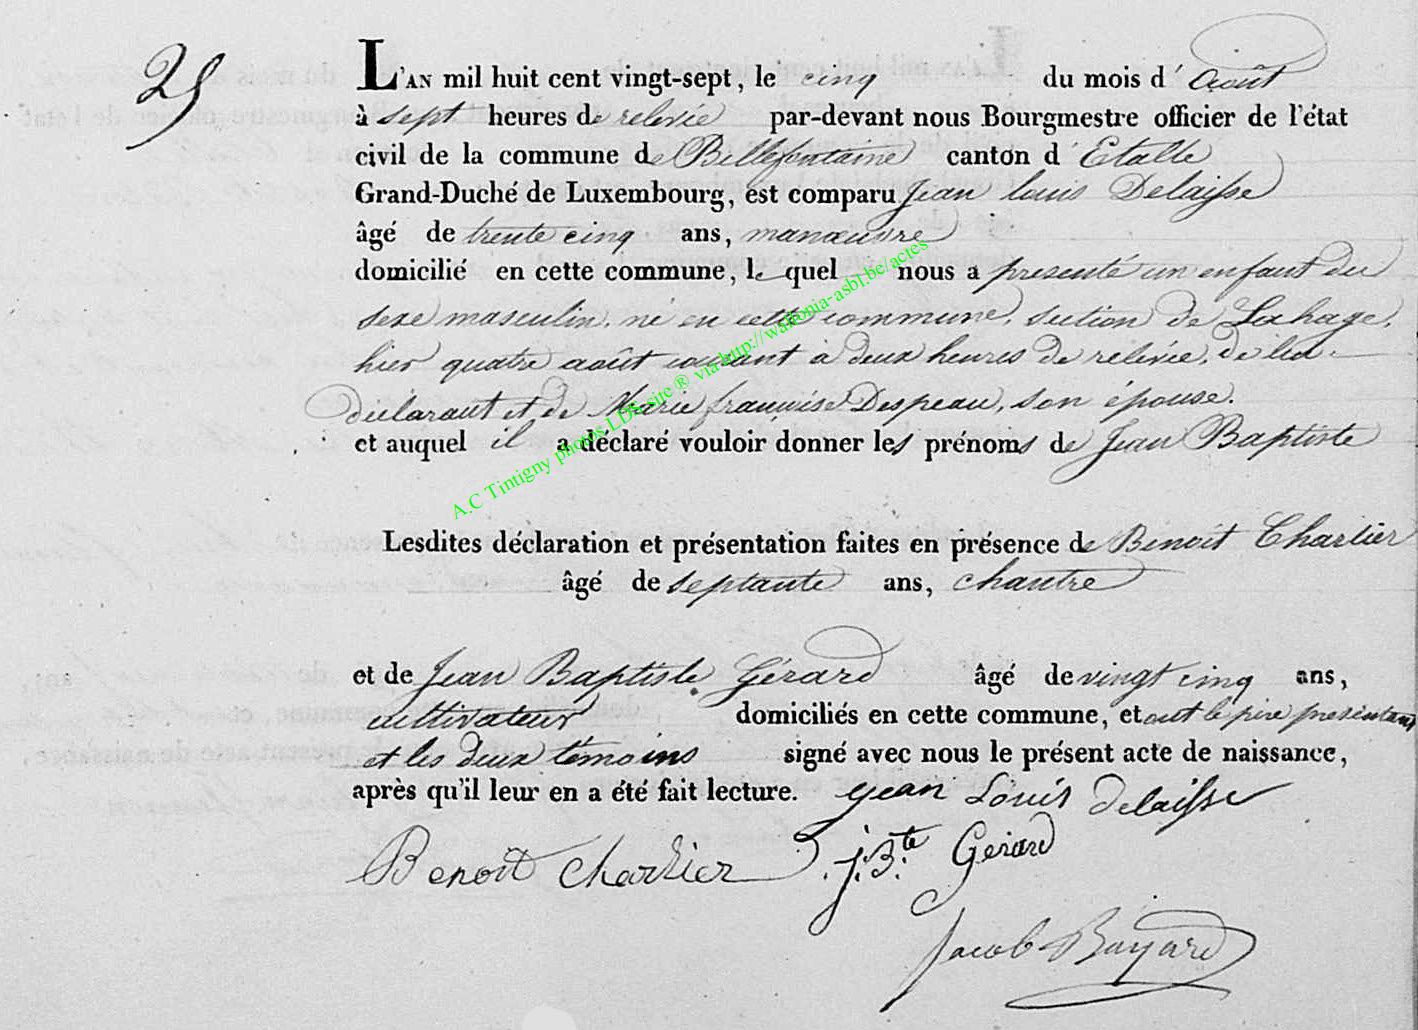 25
L'AN mil huit cent vingt-sept, le cinq du mois d' août
à sept heures de relevée par-devant nous Bourgmestre officier de l'état
civil de la commune de Bellefontaine canton d' Etalle
Grand-Duché de Luxembourg, est comparu Jean louis Delaisse
âgé de trente cinq ans, manœuvre
domicilié en cette commune, le quel nous a presenté un enfant du
sexe masculin, né en cette commune, section de Lahage,
hier quatre août courant à deux heures de relevée, de lui
déclarant et de Marie françoise Despeau, son épouse.
et auquel il a déclaré vouloir donner les prénoms de Jean Baptiste
A.C Tintigny photos LDS suc ® via http://wallonia-asbl.be/actes
Lesdites déclaration et présentation faites en présence de Benoit Charlier
âgé de septante ans, chantre
et de Jean Baptiste Gérard âgé de vingt cinq ans,
cultivateur domiciliés en cette commune, et ont le père présentant
et les deux témoins signé avec nous le présent acte de naissance,
après qu'il leur en a été fait lecture. Jean Louis Delaisse
Benoit Charlier J. B.te Gerard
Jacob Bayard